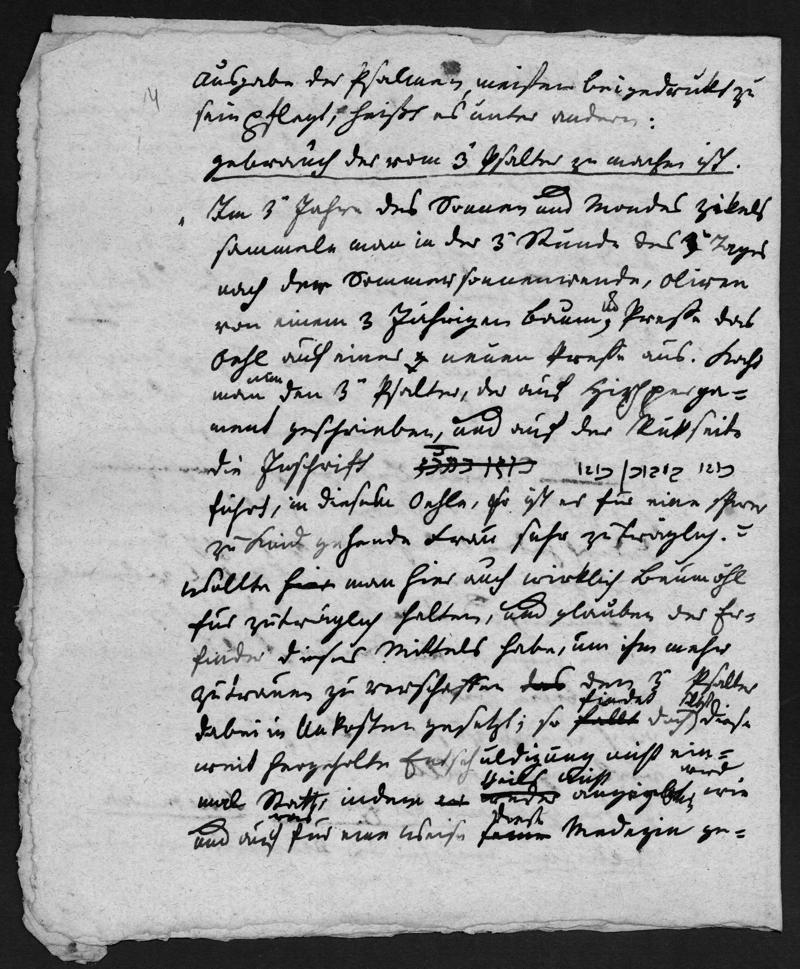 14
Ausgabe der Psalmen, meisten beigedrukt zu
sein pflegt, heißt es unter andern:
gebrauch der vom 3ͭ Psalter zu machen ist.
„ Im 3ͭ Jahre des Sonnen und Mondes zikels
sammele man in der 3ͭ Stunde des 3ͭ Tages
nach der Sommersonnenwende, Oliven
von einem 3 Jährigen Baum, und Preße das
Oehl auf einer neuen Preße aus. Kocht
man nun den 3ͭ Psalter, der auf Hirschperga=
ment geschrieben, und auf der Rükseite
die Inschrift
führt, in diesem Oehle, so ist es für eine schwer
zu Kind gehende Frau sehr zuträglich."
Wollte hier man hier auch wirklich Baumöhl
für zuträglich halten, und glauben der Er=
finder dieses Mittels habe, um ihm mehr
zutrauen zu verschaffen das den 3ͭ Psalter
dabei in Unkosten gesetzt; so fällt findet doch selbst diese
weit hergeholte Entschuldigung nicht ein=
mal Statt, indem weder theils nicht angegeben wird, wie
und auf was für eine Weise seine diese Medezin ge=